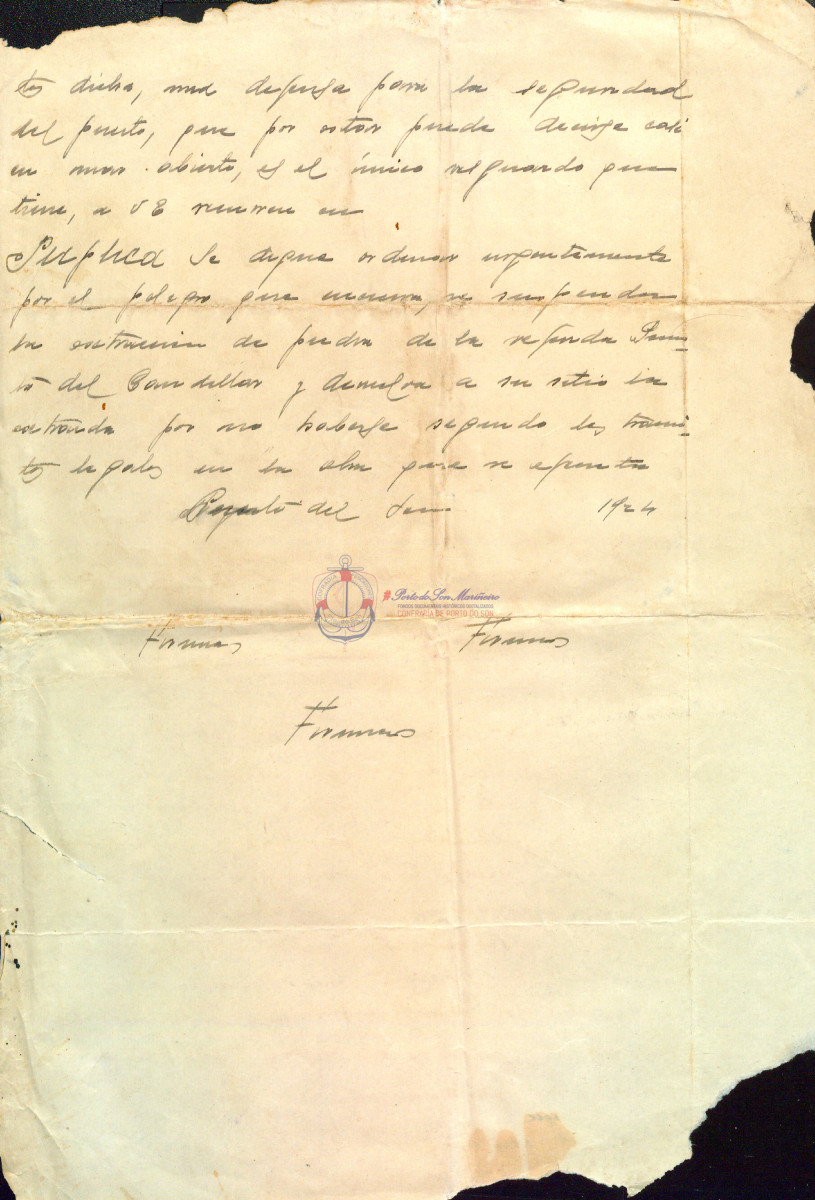 tes dicho, una defensa para la seguridad
del puerto, que por estar puede decirse casi
en mar abierto, es el único resguardo que
tiene, a VE recurren en
Suplica Se digne ordenar urgentemente
por el peligro que encierra, se suspenda
la extracción de piedra de la referida Pun-
ta del Candellar y devuelva a su sitio la
extraida por no haberse seguido los trami-
tes legales en la obra que se ejecuta
Puerto del Son 1924
#Porto do Son Mariñeiro
FONDOS DOCUMENTAIS HISTÓRICOS DIXITALIZADOS
CONFRARÍA DE PORTO DO SON
Firmas Firmas
Firmas